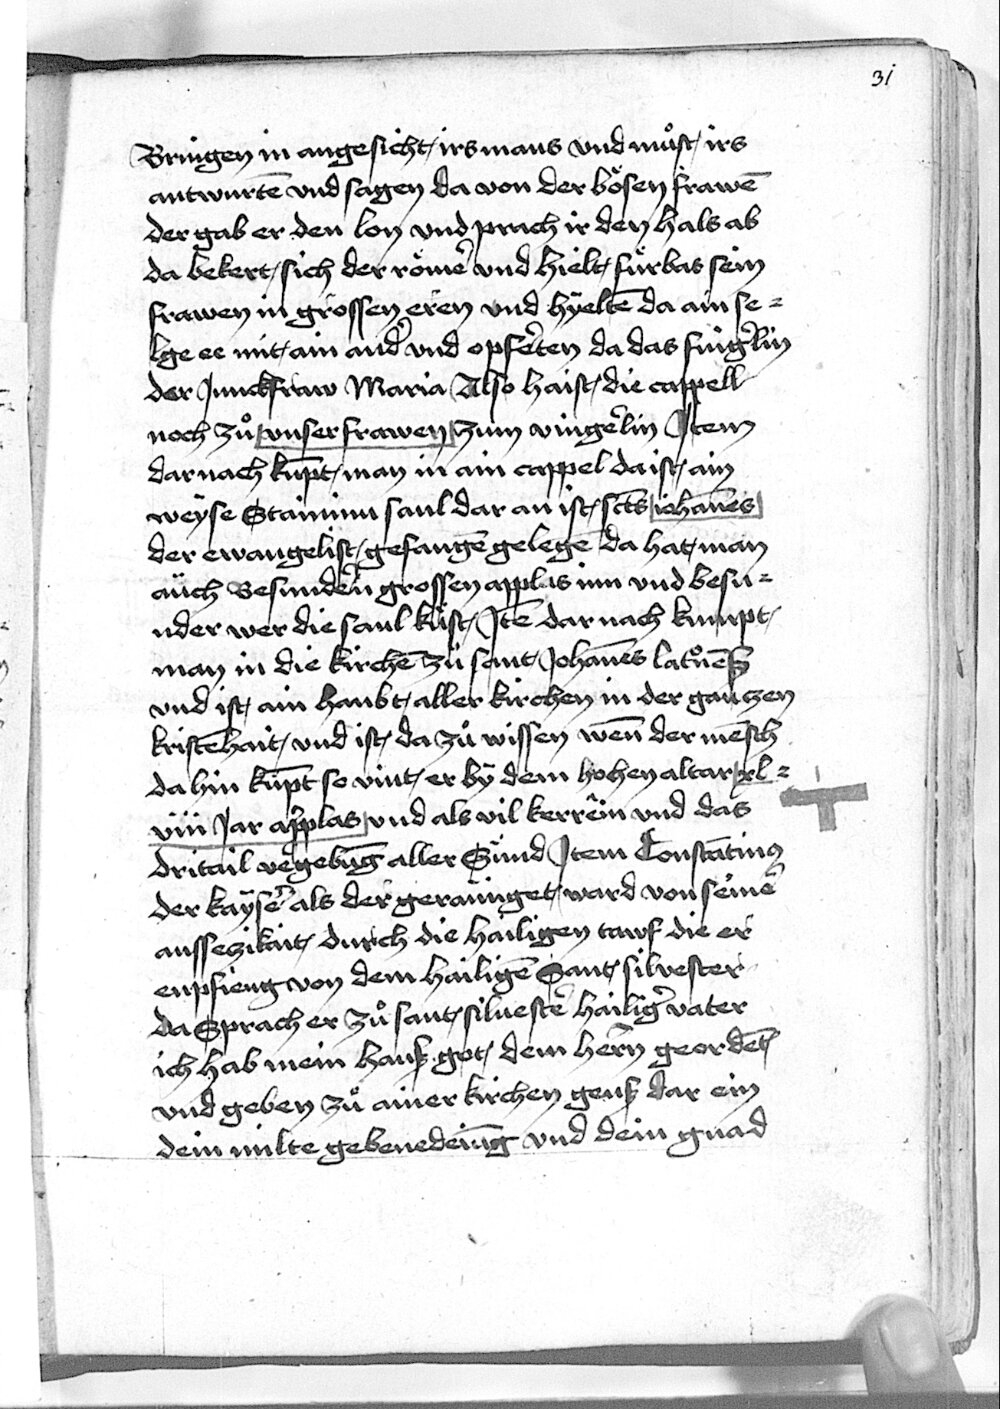 31
Bringen in angesicht irs mans vnd můst irs
antwurtē vnd sagen da von der bösen frawē
der gab er den lon vnd prach ir den hals ab
da bekert sich der römer vnd hielt fürbas sein
frawen in grossen eren vnd hyeltē da ain se=
lge ee mit ain ander vnd opferten da das fingerlin
der Junckfraw Maria Also haist die cappell
noch zů vnser frawen zum vingerlin Item
dar nach kūpt man in ain cappel da ist ain
weyse Staininu saul dar an ist scts iohānes
der ewangelist gefangē gelegē da hat man
auch Besundern grossen applas inn vnd besu=
nder wer die saul küst Itē dar nach kumpt
man in die kirchē zů sant Johānes
vnd ist ain haubt aller kirchen in der gantzen
kristēhait vnd ist da zů wissen wen̄ der mēsch
da hin kūpt so vint er by dem hohen altar xl=
viii Jar applas vnd als vil kerrein vnd das
dritail vergebūg aller Sünd Item Constātinus
der kayser als der gerainiget ward von seiner
aussezikait durch die hailigen tawf die er
enpfieng von dem hailigē Sant silvester
da Sprach er zů sant siluester hailiger vater
ich hab mein haus got dem hern̄ geordēt
vnd geben zů ainer kirchen geus dar ein
dein milte gebenedeiūg vnd dein gnad